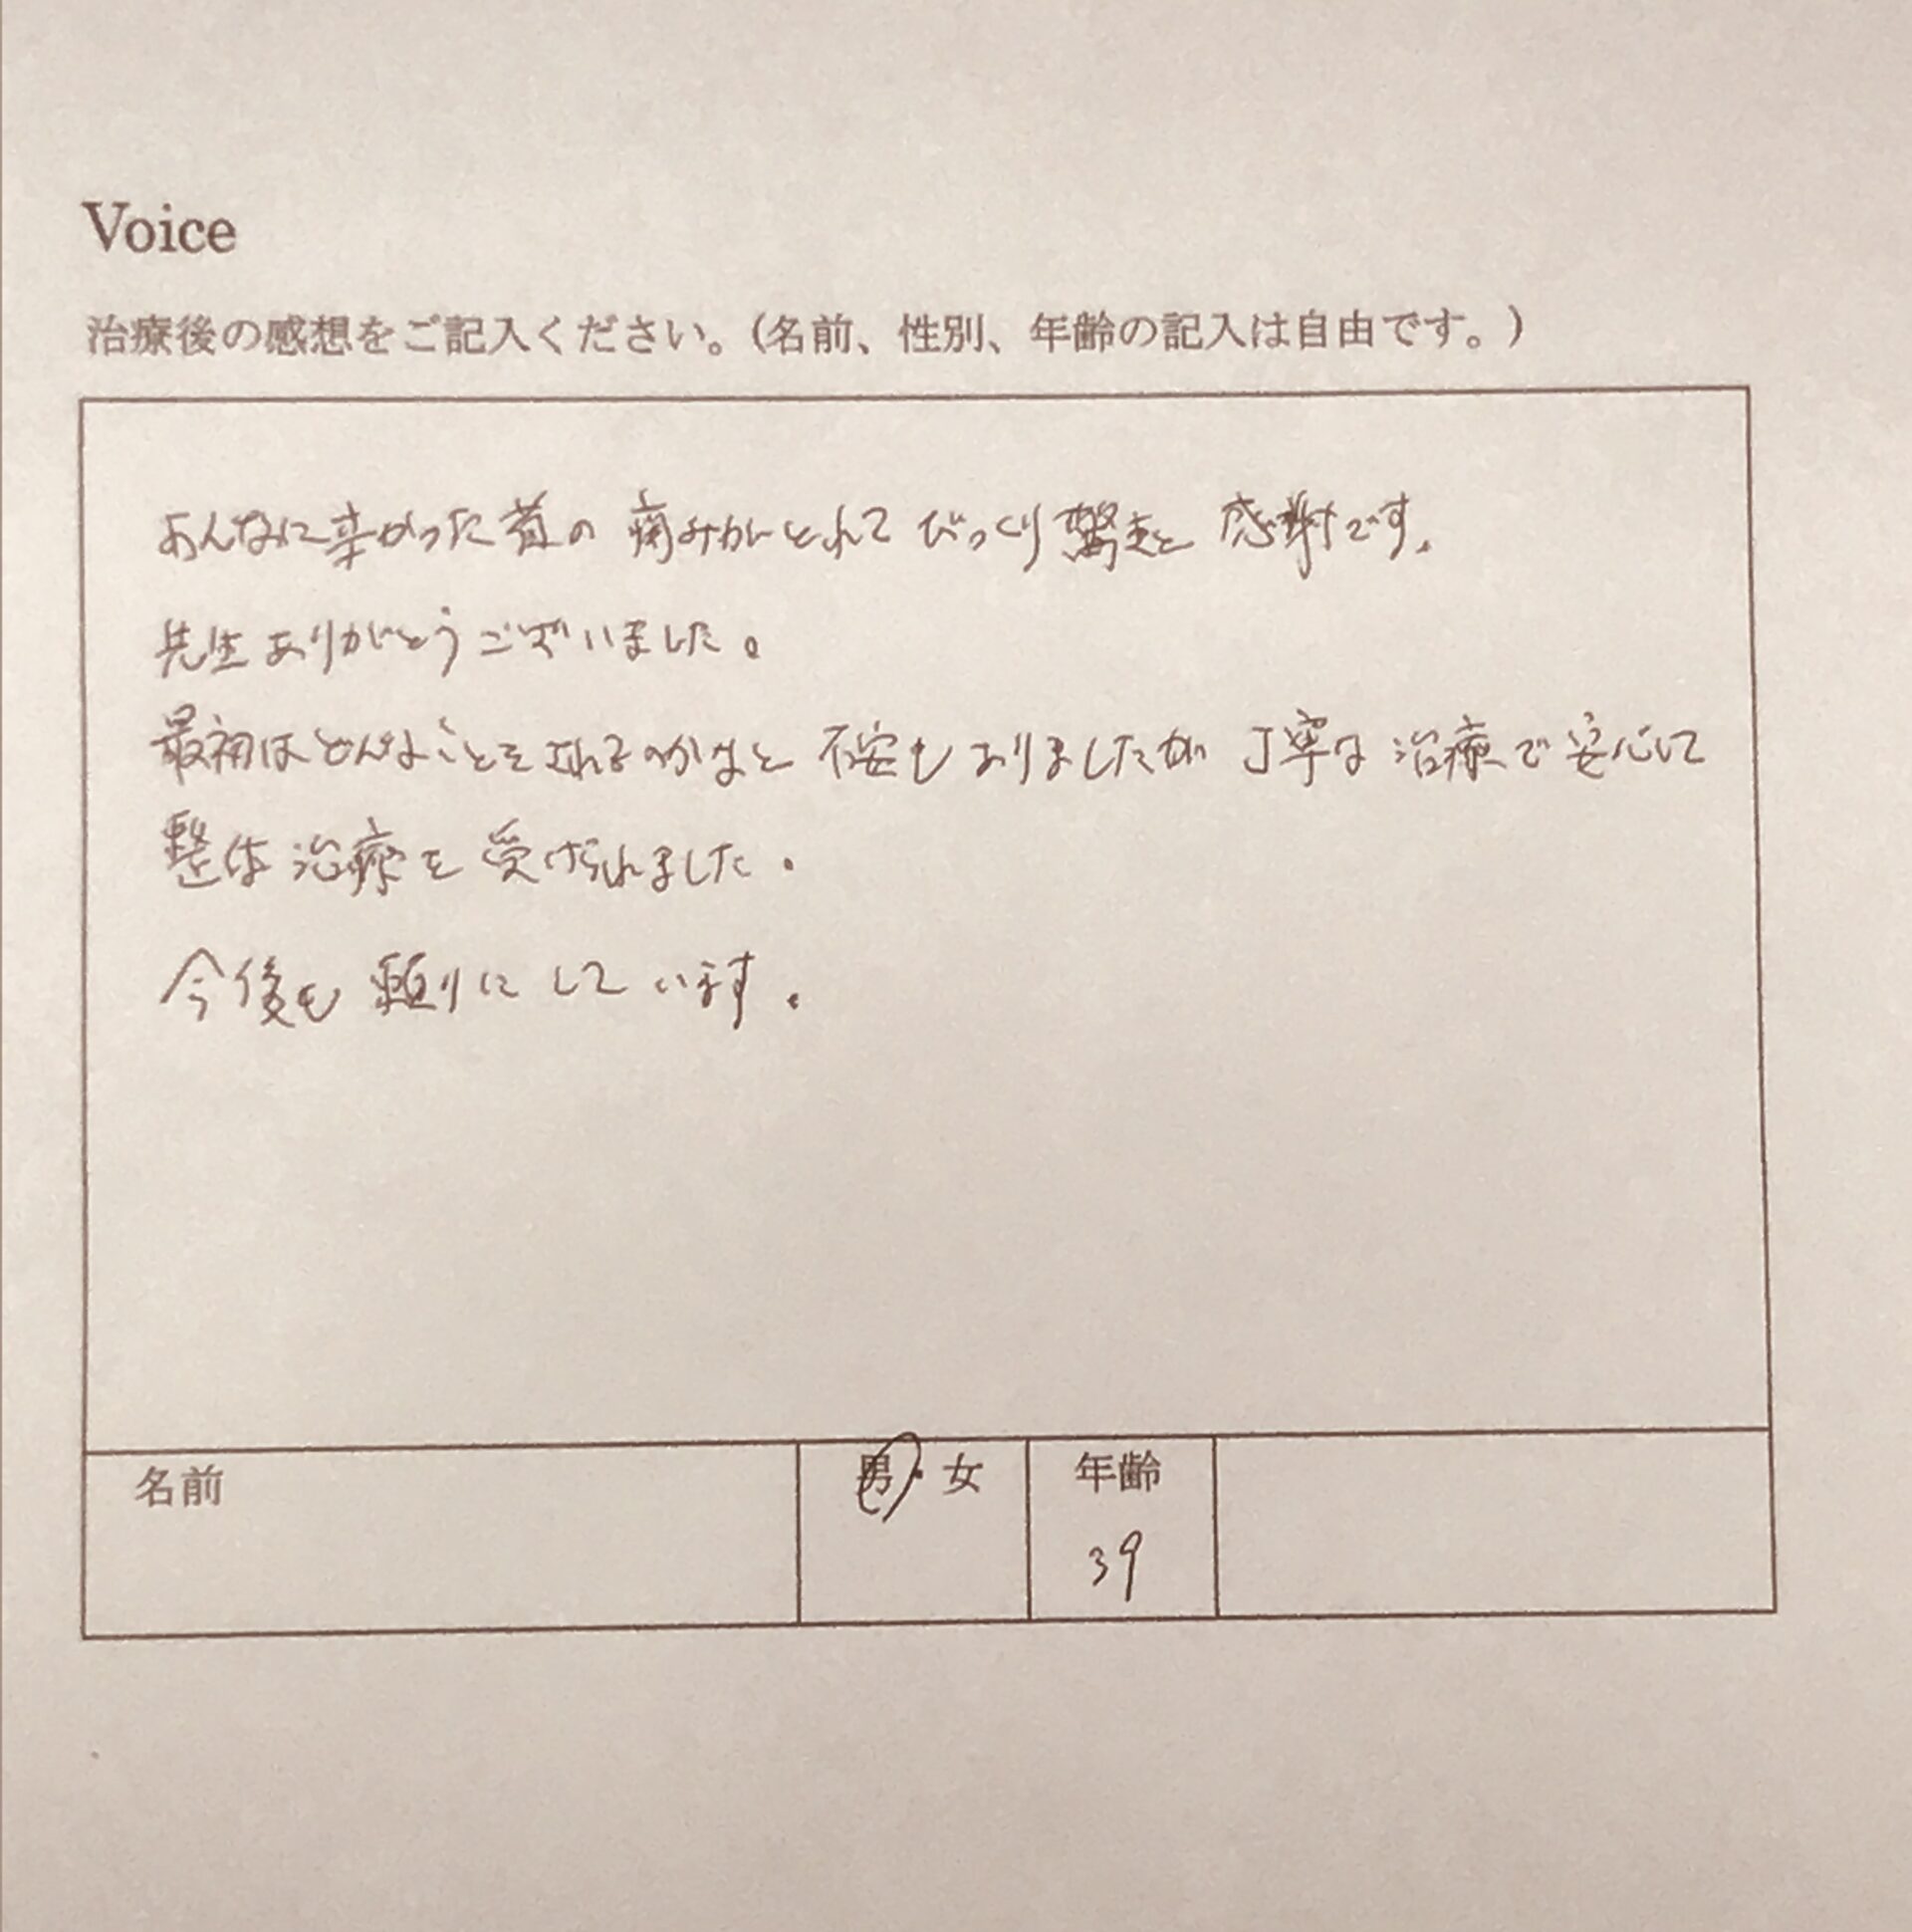 Voice
治療後の感想をご記入ください。(名前、性別、年齢の記入は自由です。)
あんなに辛かった首の痛みがとれてびっくり驚きと感謝です。
先生ありがとうございました。
最初はどんなことをされるのかなと不安もありましたが丁寧な治療で安心して
整体治療を受けられました。
今後も頼りにしています。
名前 男・女 年齢
39